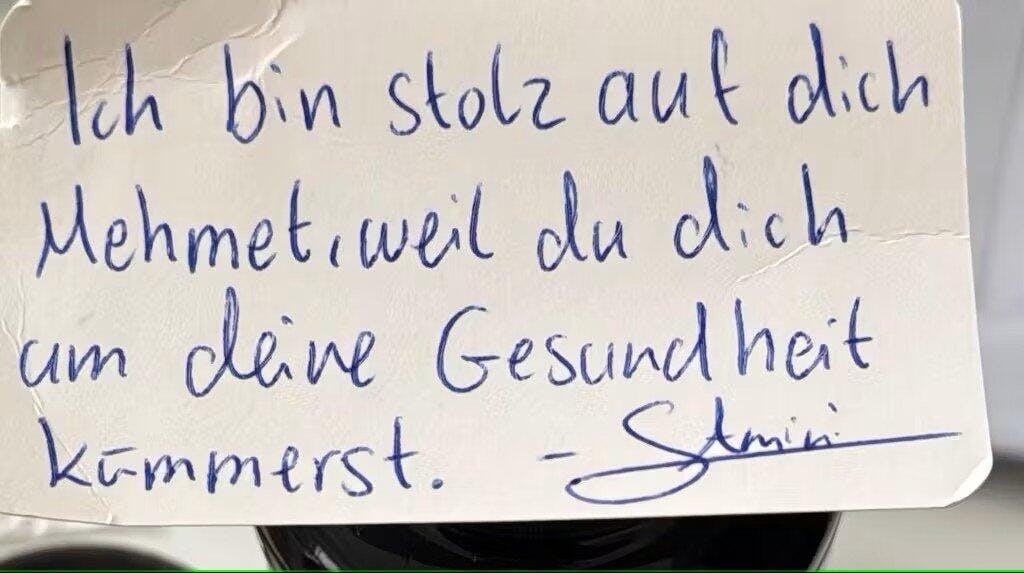 Ich bin stolz auf dich
Mehmet, weil du dich
um deine Gesundheit
kümmerst. -